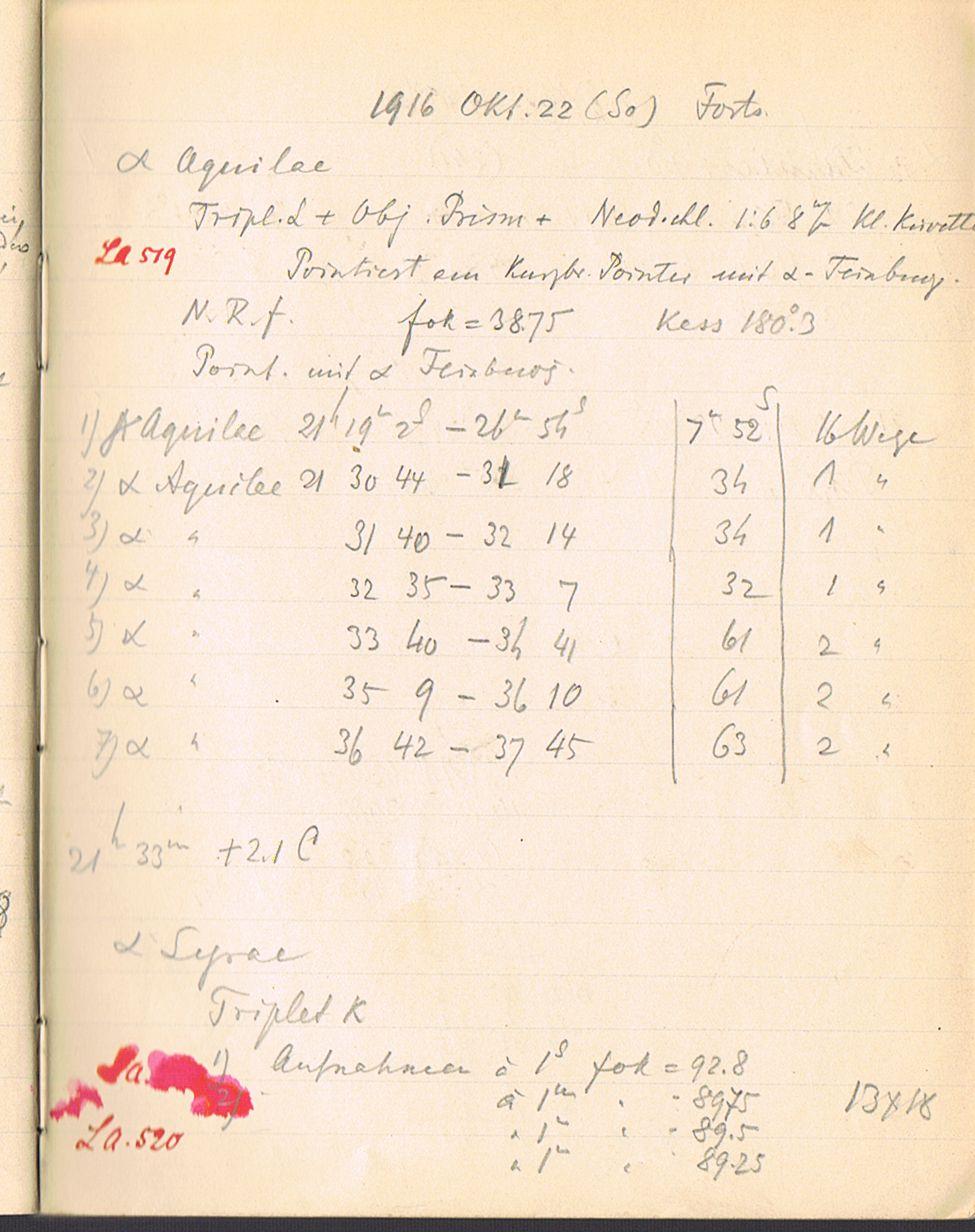 1916 Okt. 22 (So) Forts.
α Aquilae
Tripl. L + Obj. Prism + Neod. chl. 1:6 8 Kl. Küvette
La 519
Pointiert am Kurzbr. Pointer mit α-Feinbewg.
N. R. f. fok = 38.75 Kess 180°.3
Point. mit α Feinbewg.
1) Aquilae 21h 19m 2s – 26m 54s 7m 52s 16 Wege
2) α Aquilae 21 30 44 – 31 18 34 1 "
3) α " 31 40 – 32 14 34 1 "
4) α " 32 35 – 33 7 32 1 "
5) α " 33 40 – 34 41 61 2 "
6) α " 35 9 – 36 10 61 2 "
7) α " 36 42 – 37 45 63 2 "
21h 33m +2.1 C
α Lyrae
Triplet K
La.
1) Aufnahmen à 1s fok = 92.8
2) à 1m " " 89.75 13x18
" 1m " " 89.5
La. 520
" 1m " 89.25